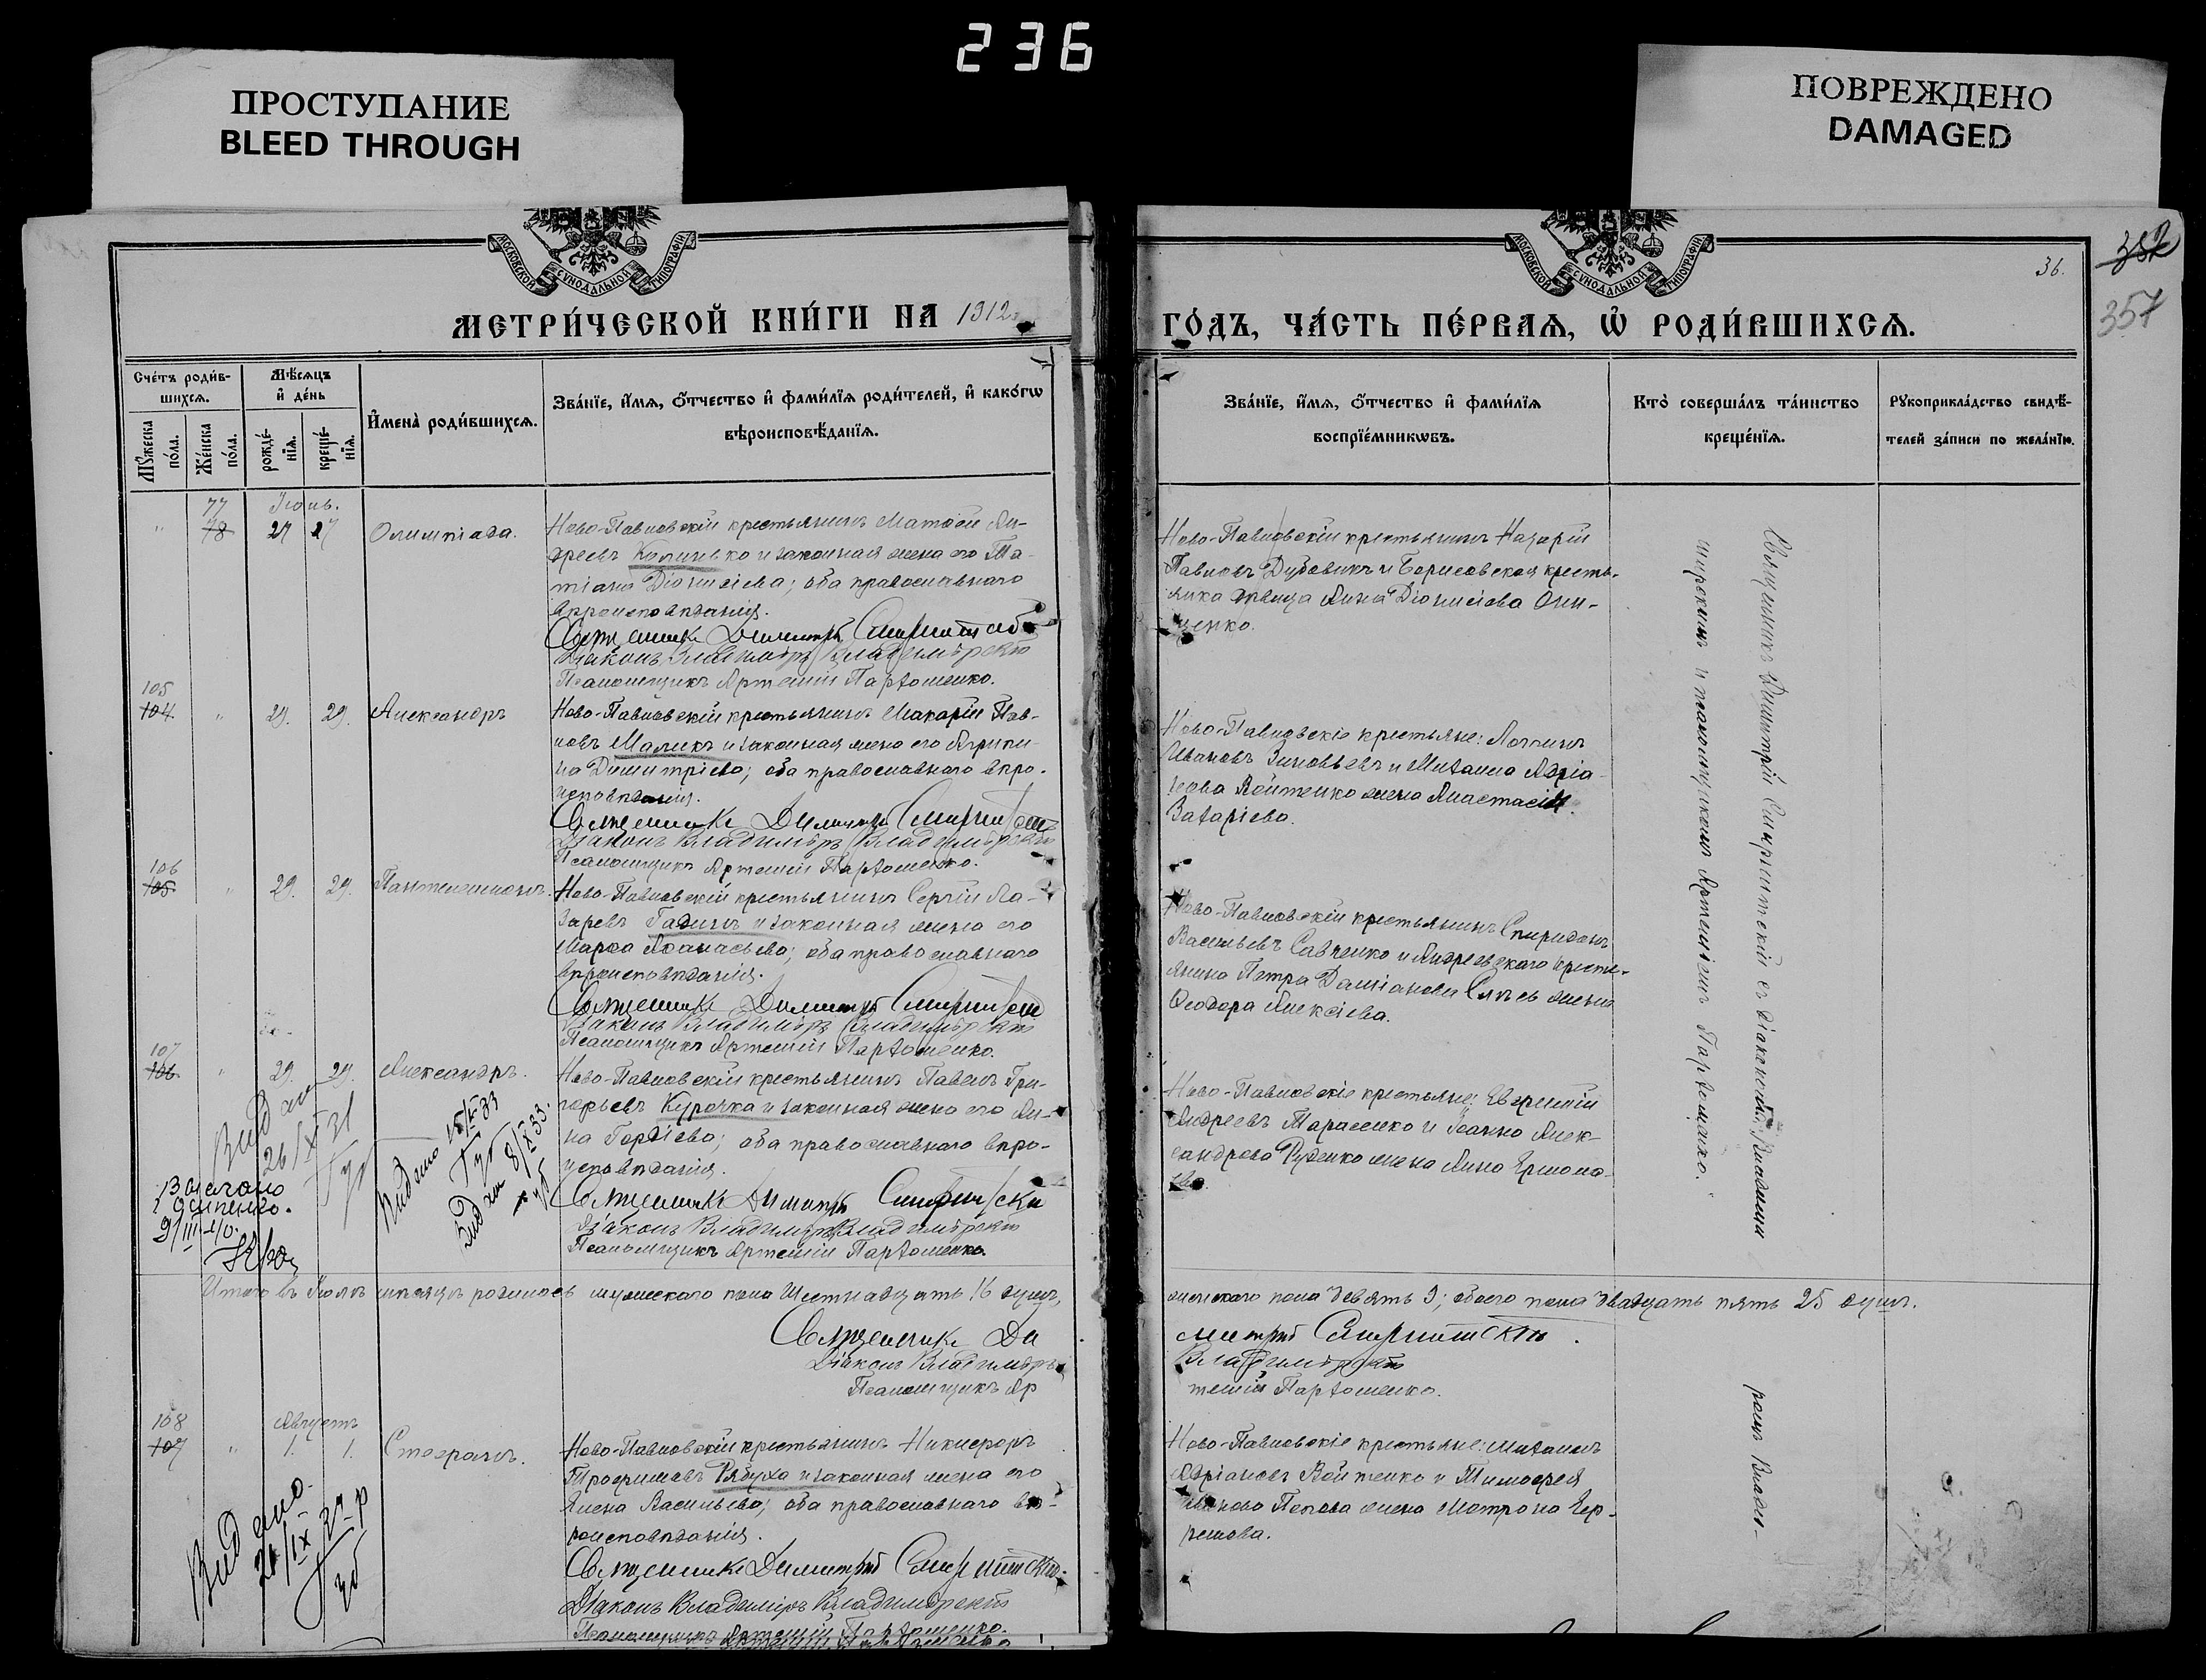 236
ПРОСТУПАНИЕ
BLEED THROUGH
ПОВРЕЖДЕНО
DAMAGED
МОСКОВСКОЙ СУНОДАЛЬНОЙ ТИПОГРАФІИ
МОСКОВСКОЙ СУНОДАЛЬНОЙ ТИПОГРАФІИ
36.
352
357
МЕТРИ́ЧЕСКОЙ КНИ́ГИ НА 1912
ГО́ДЪ, ЧА́СТЬ ПЕ́РВАѦ, Ѡ РОДИ́ВШИХСѦ.
Сче́тъ роди́в-
шихсѧ.
Мѣ́сѧцъ
и҆ де́нь
Мꙋжеска
по́ла.
Же́нска
по́ла.
рожде́-
нїѧ.
креще́-
нїѧ.
И҆мена̀ роди́вшихсѧ.
Зва́нїе, и҆́мѧ, ѻ҆́тчество и҆ фами́лїѧ роди́телей, и҆ како́гѡ
вѣроисповѣ́данїѧ.
Зва́нїе, и҆́мѧ, ѻ҆́тчество и҆ фами́лїѧ
воспрїе́мникѡвъ.
Кто̀ соверша́лъ та́инство
креще́нїѧ.
Рꙋкоприкла́дство свидѣ́-
телей за́писи по жела́нїю.
77
78
Іюль.
27 27
Олимпіада.
Ново-Павловскій крестьянинъ Матѳей Ан-
дреевъ Калинько и законная жена его Та-
тіана Діонисіева; оба православнаго
вѣроисповѣданія.
Священникъ Димитрій Смирнитскій
Діаконъ Владиміръ Владимірскій
Псаломщикъ Артемій Пархоменко.
Ново-Павловскій крестьянинъ Назарій
Павловъ Дубовикъ и Борисовская кресть-
янка дѣвица Анна Діонисіева Они-
щенко.
105
104
" 29. 29. Александръ
Ново-Павловскій крестьянинъ Макарій Пав-
ловъ Маликъ и законная жена его Агрипи-
на Димитріева; оба православнаго вѣро-
исповѣданія.
Священникъ Димитрій Смирнитскій
Діаконъ Владиміръ Владимірскій
Псаломщикъ Артемій Пархоменко.
Ново-Павловскіе крестьяне: Логгинъ
Ивановъ Зиновьевъ и Михаила Адріа-
нова Войтенко жена Анастасія
Захаріева.
106
105
" 29. 29. Пантелеимонъ.
Ново-Павловскій крестьянинъ Сергій Ла-
заревъ Гадинъ и законная жена его
Марѳа Аѳанасьева; оба православнаго
вѣроисповѣданія.
Священникъ Димитрій Смирнитскій
Діаконъ Владиміръ Владимірскій
Псаломщикъ Артемій Пархоменко.
Ново-Павловскій крестьянинъ Спиридонъ
Васильевъ Савченко и Андреевскаго кресть-
янина Петра Даміанова жена
Ѳеодора Алексіева.
107
106
" 29. 29. Александръ.
Ново-Павловскій крестьянинъ Павелъ Гри-
горьевъ Курочка и законная жена его Ан-
на Гордіева; оба православнаго вѣро-
исповѣданія.
Священникъ Димитрій Смирнитскій
Діаконъ Владиміръ Владимірскій
Псаломщикъ Артемій Пархоменко.
Ново-Павловскіе крестьяне:
Андреевъ Тарасенко и Іоанна Алек-
сандрова Руденко жена Анна Ермола-
ева.
Видано
26/XI 31
Видано 15/V-33
Видано 8/X 33.
9/III-40.
Итого въ Іюлѣ мѣсяцѣ родилось мужескаго пола Шестнадцать 16 душъ,
женскаго пола девять 9; обоего пола двадцать пять 25 душъ.
Священникъ Димитрій Смирнитскій.
Діаконъ Владиміръ Владимірскій
Псаломщикъ Артемій Пархоменко.
108
107
Августъ
" 1. 1. Стефанъ.
Ново-Павловскій крестьянинъ Никифоръ
Трофимовъ Рябуха и законная жена его
Елена Васильева; оба православнаго вѣ-
роисповѣданія.
Священникъ Димитрій Смирнитскій.
Діаконъ Владиміръ Владимірскій
Псаломщикъ Артемій Пархоменко.
Ново-Павловскіе крестьяне: Михаилъ
Адріановъ Войтенко и Тимофея
Попова жена Матрона
Видано
26/IX 27 р
Священникъ Димитрій Смирнитскій съ діакономъ Владимі-
ромъ Влади-
мірскимъ и псаломщикомъ Артеміемъ Пархоменко.